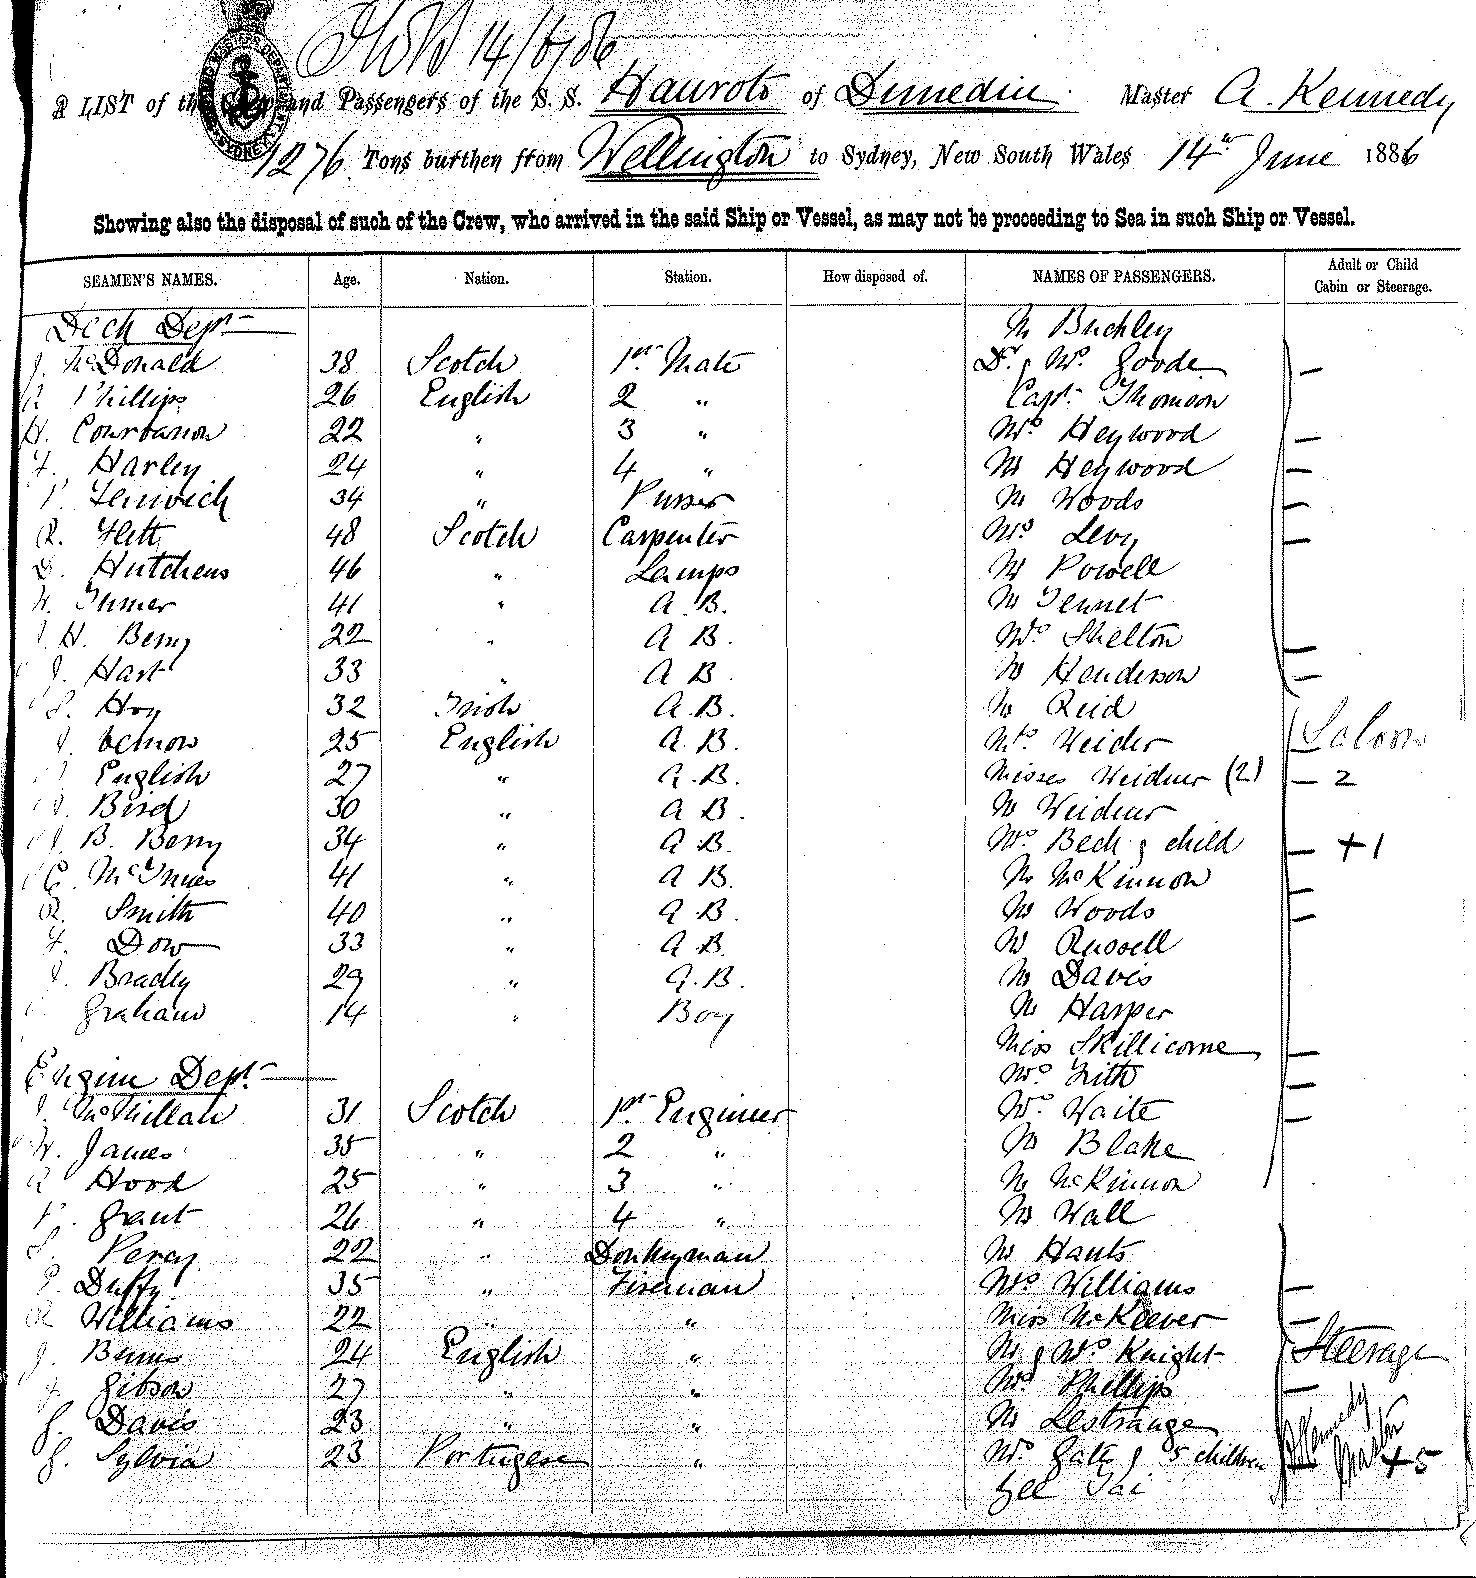 14/6/86
A LIST of the Crew and Passengers of the S. S. Hauroto of Dunedin. Master A. Kennedy
1276 Tons burthen from Wellington to Sydney, New South Wales 14th June 1886
Showing also the disposal of such of the Crew, who arrived in the said Ship or Vessel, as may not be proceeding to Sea in such Ship or Vessel.
SEAMEN'S NAMES. Age. Nation. Station. How disposed of. NAMES OF PASSENGERS. Adult or Child Cabin or Steerage.
Deck Dept Mr Buckley
J. McDonald 38 Scotch 1st Mate Dr & Mrs Goode —
Phillips 26 English 2 " Capt. Thomson
H. 22 " 3 " Mrs Heywood —
F. Harley 24 " 4 " Mr Heywood —
P. Fenwick 34 " Purser Mr Woods —
R. Flett 48 Scotch Carpenter Mrs Levy —
D. Hutchens 46 " Lamps Mr Powell
W. Turner 41 " A. B. Mr Tennet
J H. Berry 22 " A B. Mrs Shelton —
J. Hart 33 " A B. Mr Henderson —
S. Hoy 32 Irish A. B. Mr Reid
J. Vernon 25 English A. B. Mrs Weider — Saloon
English 27 " A. B. Misses Weidner (2) — 2
Bird 30 " A B. Mr Weidner
J. B. Berry 34 " A B. Mrs Beck & child — +1
C. McInnes 41 " A B. Mr McKinnon —
R. Smith 40 " A B. Mr Woods —
F. Dow 33 " A B. Mr Russell
J. Bradly 29 " A. B. Mr Davis
Graham 14 " Boy Mr Harper
Miss Skillicorne —
Engine Dept. Mrs Frith —
J. McMillan 31 Scotch 1st Engineer Mrs Waite —
W. James 35 " 2 " Mr Blake
R Hood 25 " 3 " Mr McKinnon
P. Grant 26 " 4 " Mr Wall
S. Percy 22 " Donkeyman Mr Hants
P. Duffy 35 " Fireman Mrs Williams —
R Williams 22 " " Miss McKeever —
J. Burns 24 English " Mr & Mrs Knight Steerage
F. Gibson 27 " " Mrs Phillips —
G. Davis 23 " " Mr Lestrange
G. Sylvia 23 Portugese " Mrs & 5 children — +5
Gee Tai
A Kennedy
Master